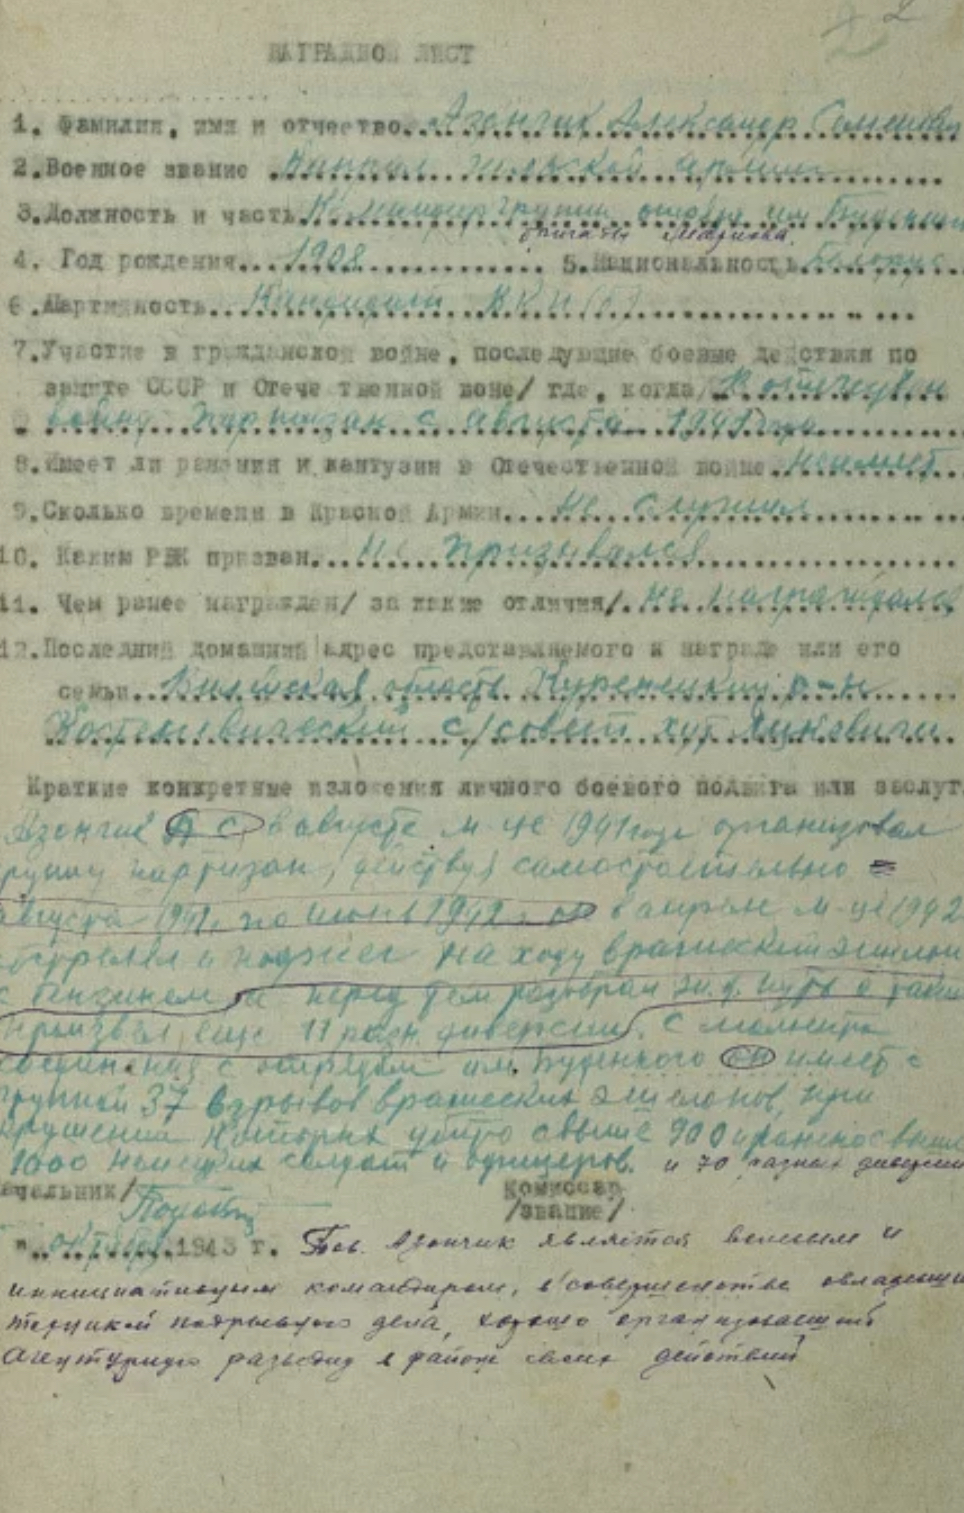 2
НАГРАДНОЙ ЛИСТ
1. Фамилия, имя и отчество Азончик Александр Семенович
2. Военное звание Капрал польской армии
3. Должность и часть Командир группы отряда им Буденного
бригады
4. Год рождения 1908 5. Национальность Белорус
6. Партийность Кандидат ВКП(б)
7. Участие в гражданской войне, последующие боевые действия по
защите СССР и Отечественной воне/ где, когда/ В отечествен
войне партизан с августа 1941 года
8. Имеет ли ранения и кантузии в Отечественной войне не имеет
9. Сколько времени в Красной Армии Не служил
10. Каким РВК призван Не призывался
11. Чем ранее награжден/ за какие отличия/ Не награждался
12. Последний домашний адрес представляемого к награде или его
семьи Вилейская область Куренецкий р-н
Костеневический с/совет хут.
Краткие конкретные изложения личного боевого подвига или заслуг
Азончик А С в августе м-це 1941 года организовал
группу партизан, действуя самостоятельно с
августа 1941г. по июнь 1942г. он в апреле м-це 1942
обстрелял и поджег на ходу вражеский эшелон
с бензином, а перед тем разобрал ж.д. путь а также
произвел еще 11 разн. диверсий. С момента
соединения с отрядом им. Буденного он имеет с
группой 37 взрывов вражеских эшелонов, при
крушении которых убито свыше 900 и ранено свыше
1000 немецких солдат и офицеров. и 70 разных диверсий
начальник/ Комиссар
/звание/
" " октября 1943 г. Тов. Азончик является волевым и
инициативным командиром, в совершенстве овладевший
техникой подрывного дела, хорошо организовавший
агентурную разведку в районе своих действий